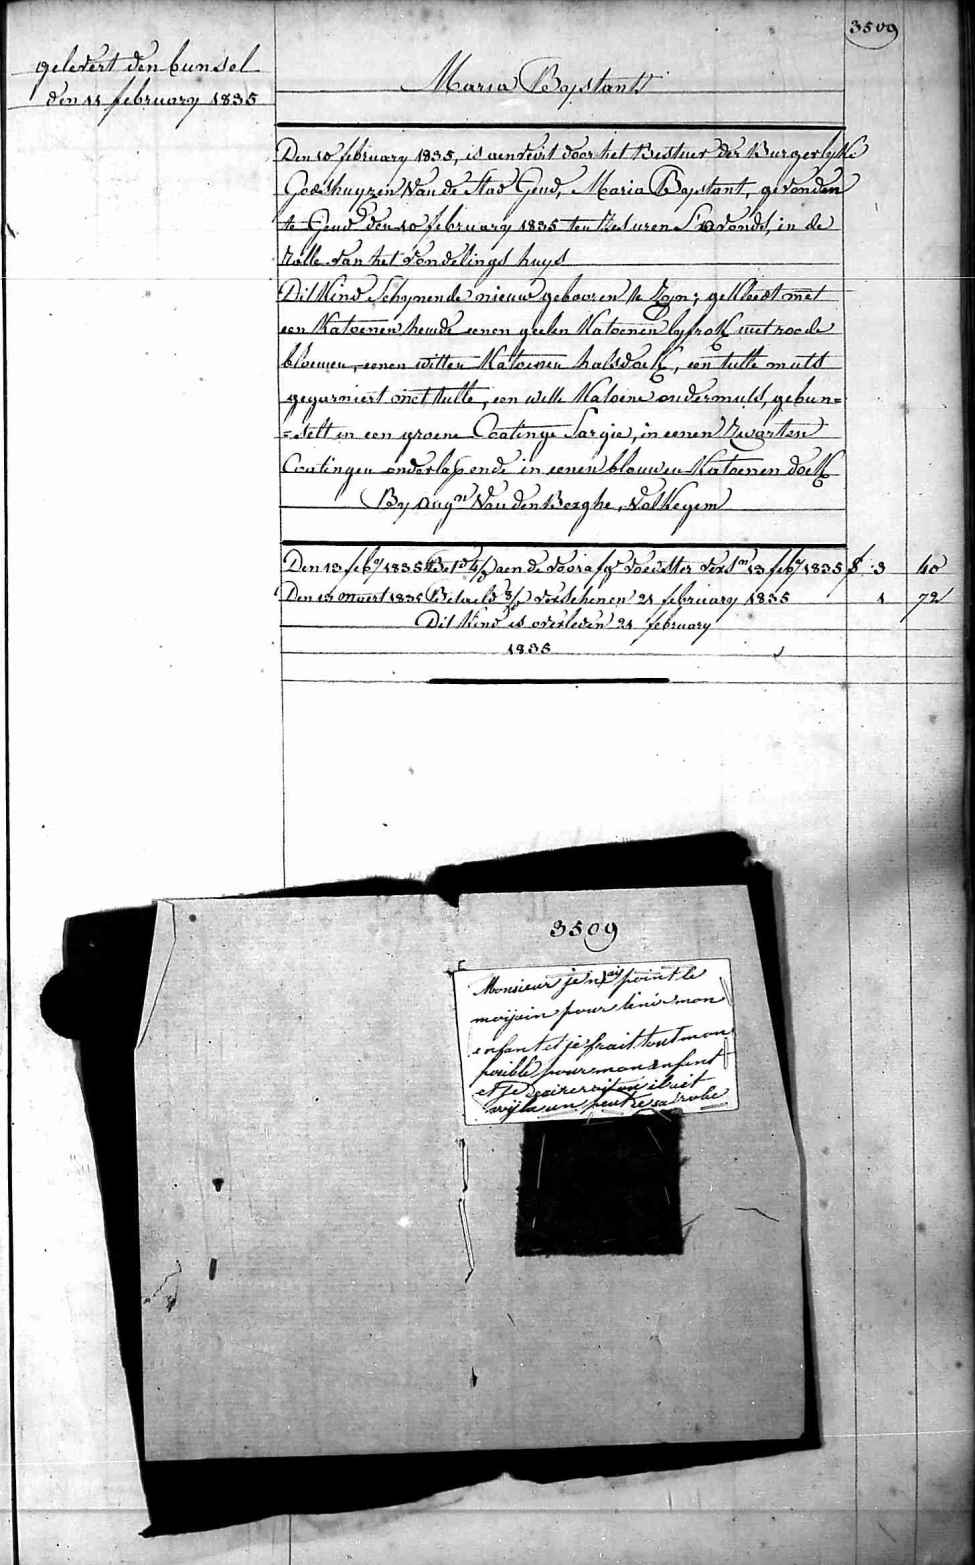 3509
gelevert den bunsel
den 11 february 1835
Maria Bystant
Den 10 february 1835, is aenveirt door het Bestuer der Burgerlyke
Godshuyzen van de Stad Gend, Maria Bystant, gevonden
te Gend den 10 february 1835 ten uren S'avonds, in de
rolle van het vondelings huys
Dit Kind Schynende nieuw gebooren te Zyn; gekleedt met
een Katoenen hemde eenen geelen Katoenen lyfrok met roode
bloemen, eenen witten Katoenen halsdoek, een tulle muts
gegarniert met tulle, een witte Katoene ondermuts, gebun=
=selt in een groene Coatinge Sargie, in eenen Zwarten
Coatingen onderlap, ende in eenen blauwen Katoenen doek
By Aug.n Van den Berghe, Volkegem
Den 13 feb.y 1835 aen de voedster 13 feb.y 1835 3 40
Den 10 meert 1835 Betaeld verschenen 21 february 1835 1 72
Dit Kind is overleden 21 february
1835
3509
Monsieur je n'ai point le
moÿein pour tenir mon
enfant et je frait tout mon
posible pour mon enfent
et je
un peut de sa robe